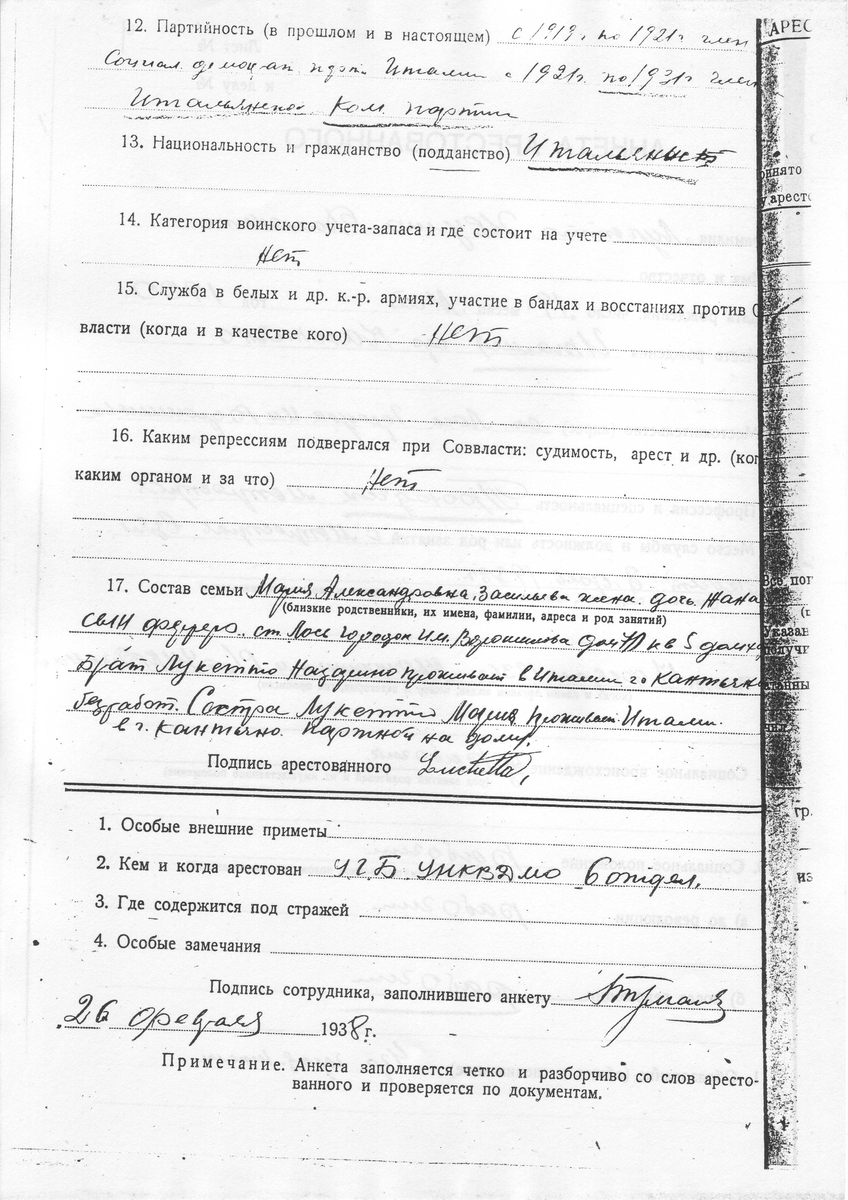 12. Партийность (в прошлом и в настоящем) с 1919г. по 1921г член
Социал. демократ. парт. Италии с 1921г. по 1931г член
Итальянской Ком. партии
13. Национальность и гражданство (подданство) Итальянец
14. Категория воинского учета-запаса и где состоит на учете
нет
15. Служба в белых и др. к.-р. армиях, участие в бандах и восстаниях против С
власти (когда и в качестве кого) нет
16. Каким репрессиям подвергался при Соввласти: судимость, арест и др. (ког
каким органом и за что) нет
17. Состав семьи Мария Александровна Васильева жена. дочь Жана
(близкие родственники, их имена, фамилии, адреса и род занятий)
сын ст. Лось городок им. Ворошилова дом кв 5
Брат Лукетто Назарино проживает в Италии г.
безработ. Сестра Лукетто Мария проживает Италии.
в г. на дому.
Подпись арестованного
1. Особые внешние приметы
2. Кем и когда арестован УГБ УНКВД МО 6 отдел.
3. Где содержится под стражей
4. Особые замечания
Подпись сотрудника, заполнившего анкету
26 февраля 1938г.
Примечание. Анкета заполняется четко и разборчиво со слов аресто-
ванного и проверяется по документам.
АРЕС